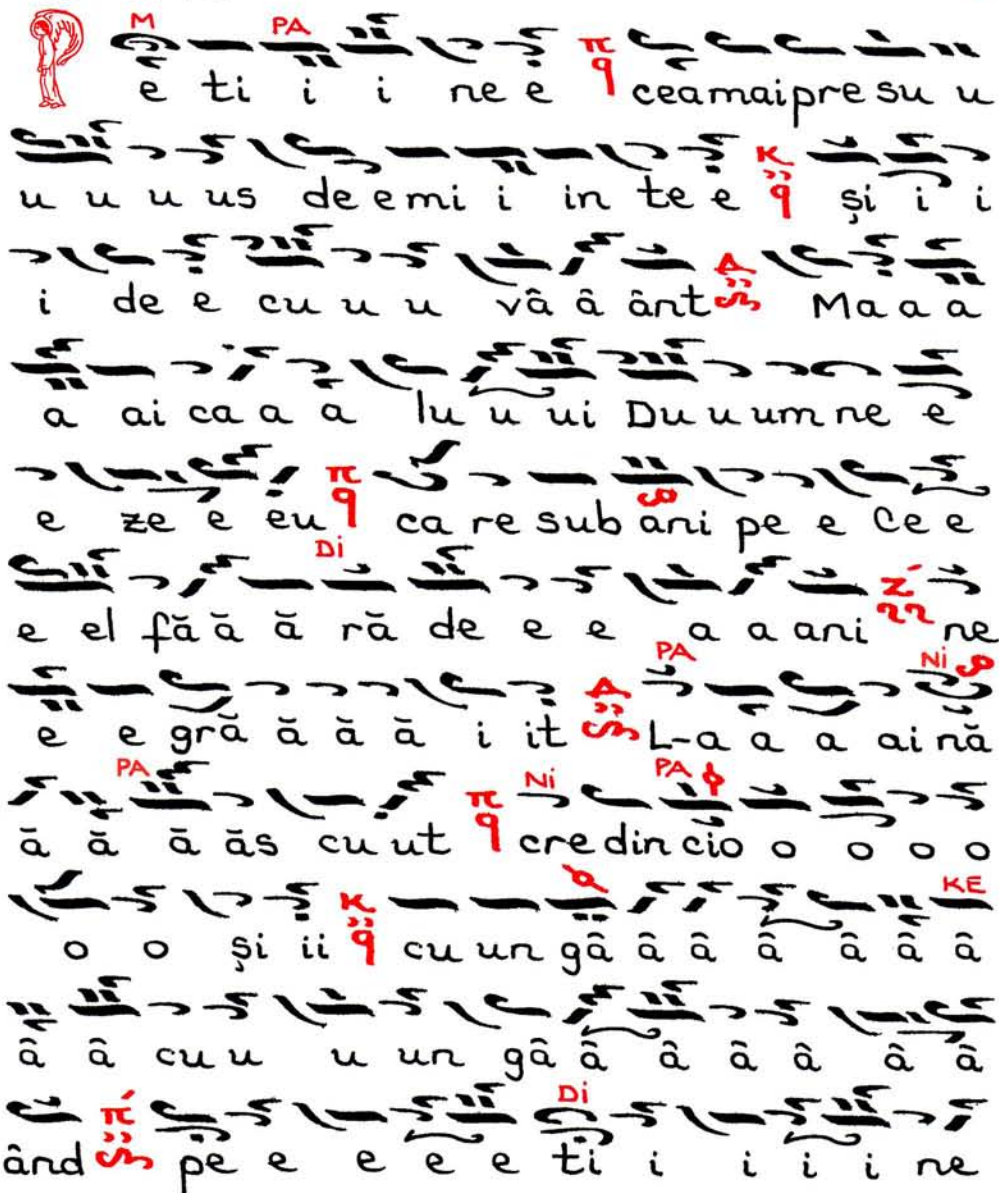 M PA
P e ti i i i ne e π q ceamaipre su u
u u u us de emi i in te e K q și i i
i de e cu u u vâ â ânt Δ Ma a a
a ai ca a a lu u ui Du u um ne e
e ze e eu π q ca re sub ani pe e Ce e
Di
e el fă ă ă ră de e e a a ani Z΄ ne
PA Ni
e e gră ă ă ă i it Δ L-a a a ai nă
PA Ni PA
ă ă ă ăs cu ut π q cre din cio o o o o
KE
o o și ii K q cu un gâ â â â â â â
â â cu u u un gâ â â â â â â
Di
ând π΄ pe e e e e ti i i i i ne